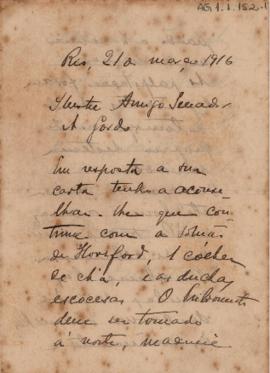 AG.1.1.152-1
Rio, 21 de março 1916
Illustre Amigo Senador
A. Gordo
Em resposta a sua
carta tenho a aconse
lhar-lhe que con
tinue com a
de Horsford, 1 colher
de chá, e as duchas
escocesas. O
deve ser tomado
á noite,